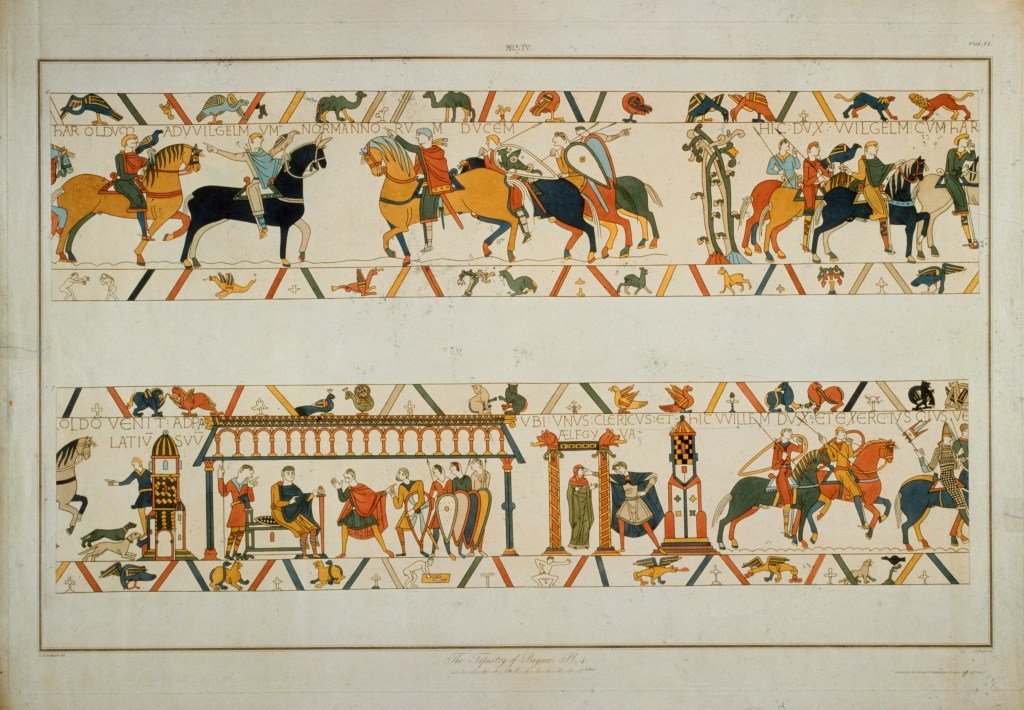 VOL. VI.
HAROLDVO AD VVILGELMVM NORMANNORVM DVCEM
HIC : DVX : VVILGELM : CVM hAR
OLDO VENIT : AD PA
LATIV SVV
VBI : VNVS : CLERICVS : ET
ÆLFGYVA
HIC WILLEM : DVX : ET EXERCITVS : EIVS : VE
The Tapestry of Bayeux. Pl. 4.